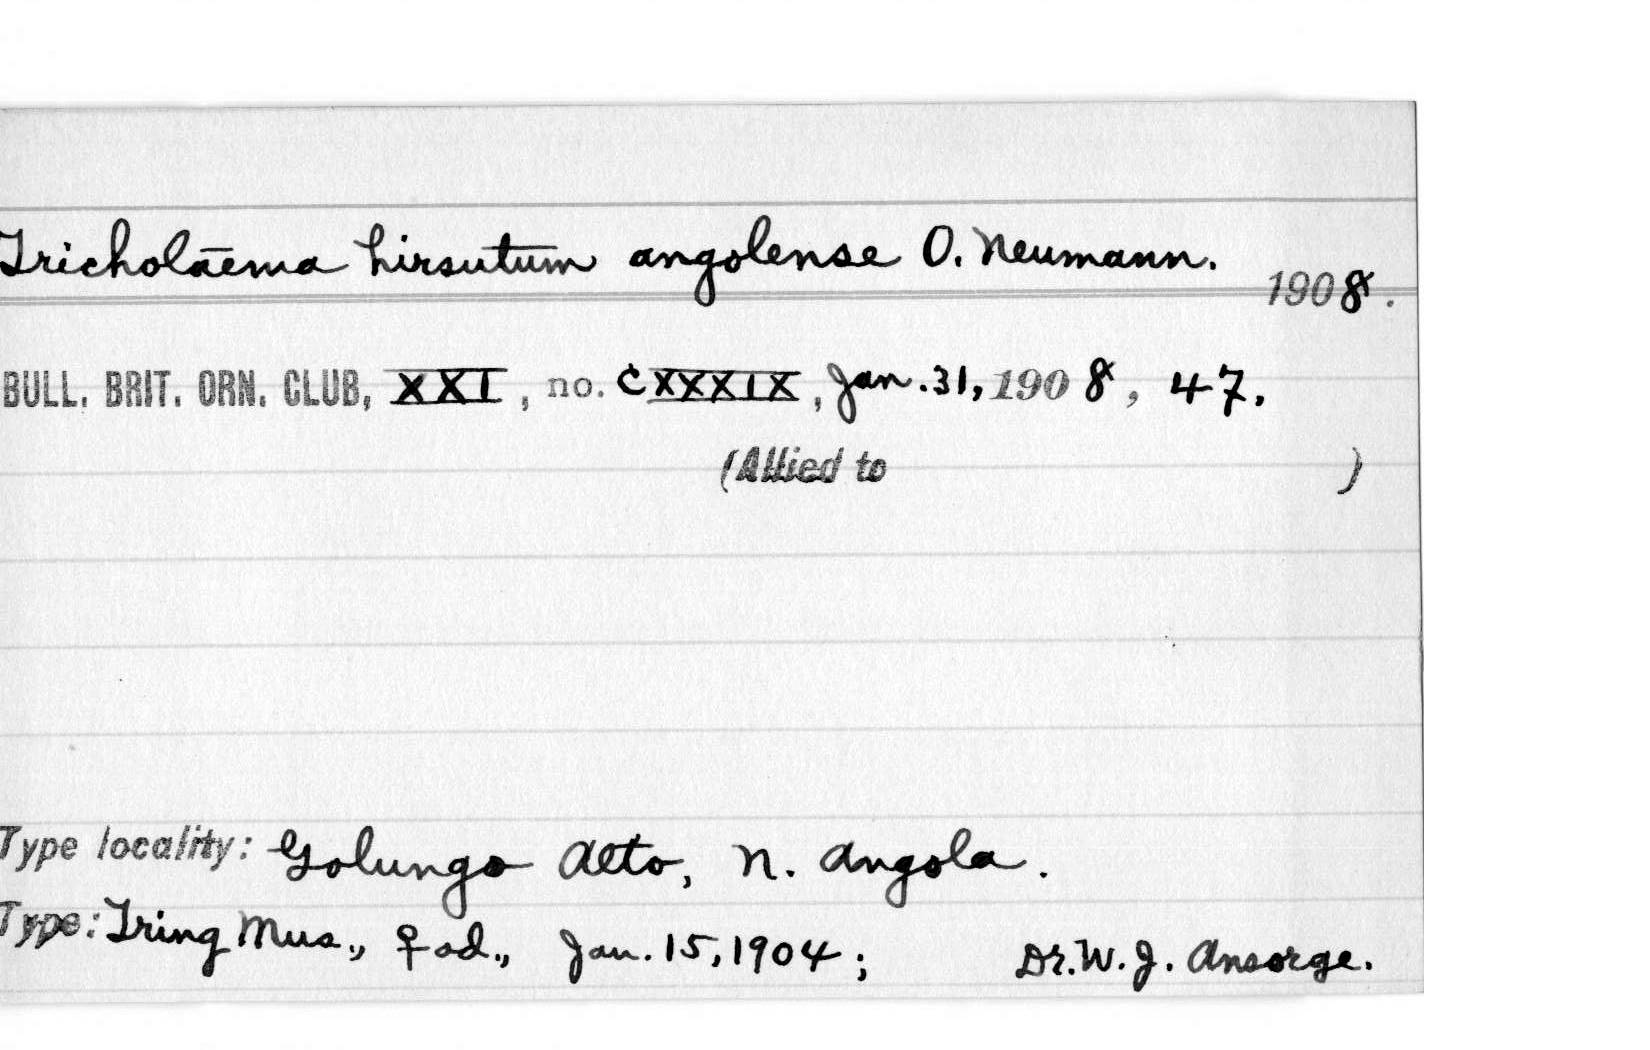 Tricholāema hirsutum angolense O. Neumann.
1908.
BULL. BRIT. ORN. CLUB, XXI, no. CXXXIX, Jan. 31, 1908, 47.
(Allied to )
Type locality: Golungo Alto, N. Angola.
Type: Tring Mus., ♀ ad., Jan. 15, 1904; Dr. W. J. Ansorge.